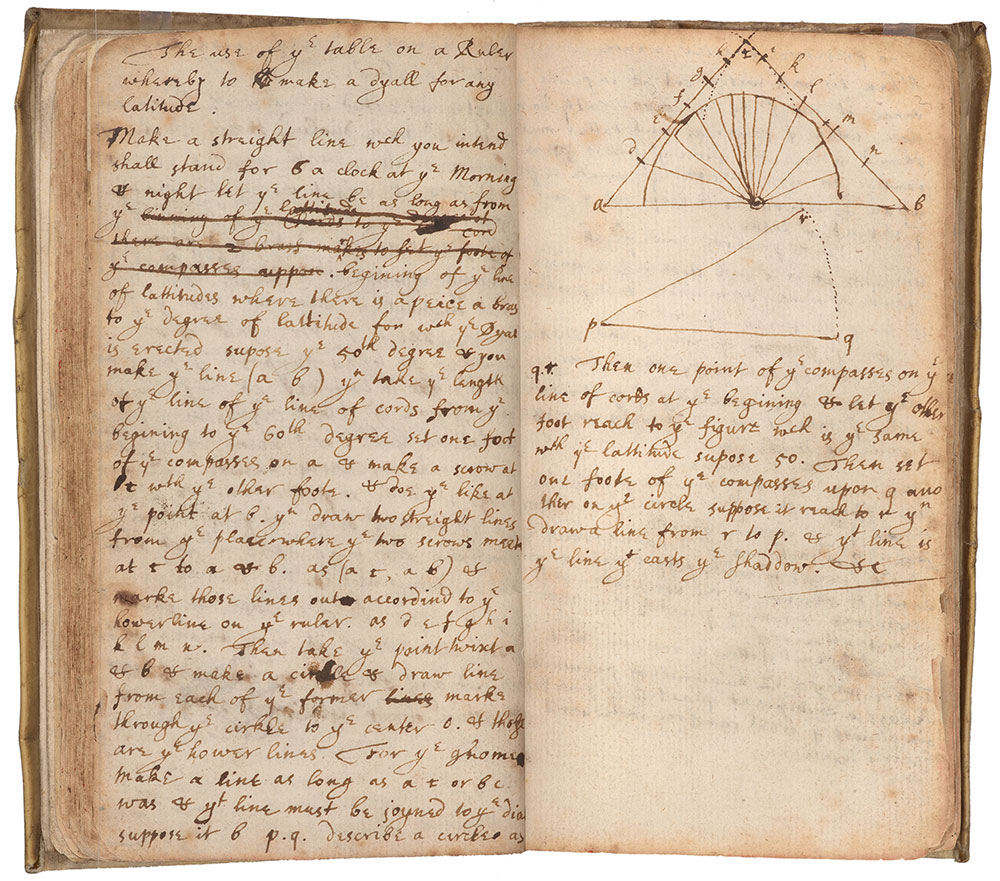 The use of yᵉ table on a Ruler
whereby to make a dyall for any
latitude.
Make a streight line wch you intend
shall stand for 6 a clock at yᵉ Morning
& night let yᵉ line be as long as from
yᵉ of yᵉ lattitude to yᵉ
cord
there are 2 brass markes to set yᵉ foote of
yᵉ compasses uppon. begining of yᵉ line
of lattitudes where there is a peice a brass
to yᵉ degree of lattitude for wch yᵉ Dyal
is erected supose yᵉ 50th degree & you
make yᵉ line (a b) yⁿ take yᵉ length
of yᵉ line of yᵉ line of cords from yᵉ
begining to yᵉ 60th degree set one foot
of yᵉ compasses on a & make a scrow at
c wth yᵉ other foote. & doe yᵉ like at
yᵉ point at b. yⁿ draw two streight lines
from yᵉ place where yᵉ two scrows meet
at c to a & b. as (a c, a b) &
marke those lines out accordind to yᵉ
howerline on yᵉ ruler. as d e f g h i
k l m n. Then take yᵉ point twixt a
& b & make a circle & draw line
from each of yᵉ former lines marke
through yᵉ cirkle to yᵉ center o. & those
are yᵉ hower lines. For yᵉ ghomen
make a line as long as a c or b c
was & yᵗ line must be joyned to yᵉ dia
suppose it b p.q. describe a circle as
d e f g h c i k l m n
a b
r
p q
q.r. Then one point of yᵉ compasses on yᵉ
line of cords at yᵉ begining & let yᵉ other
foot reach to yᵉ figure wch is yᵉ same
wth yᵉ lattitude supose 50. Then set
one foote of yᵉ compasses upon q ano
ther on yᵉ circle suppose it reach to r yⁿ
draw a line from r to p. & yᵗ line is
yᵉ line yᵗ casts yᵉ shaddow. &c